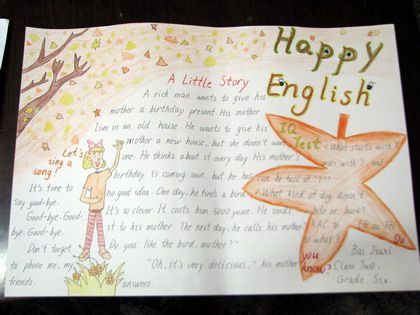 Happy
English
A Little Story
A rich man wants to give his
mother a birthday present. His mother
lives in an old house. He wants to give his
mother a new house, but she doesn't want
one. He thinks about it every day. His mother's
birthday is coming soon, but he has
no good idea. One day, he finds a bird.
It's so clever. It costs him 5000 yuan. He sends
it to his mother. The next day, he calls his mother.
Do you like the bird, mother?
"Oh, it's very delicious," his mother
answers.
Let's
sing a
song!
It's time to
say good-bye.
Good-bye. Good-
bye. Good-bye.
Don't forget
to phone me, my
friends.
IQ
Test
What starts with T
ends with
and
can be full of "T"?
What kind of dog doesn't
bite or bark?
Do
you
know?
Bai Jiari
Class Two,
Grade Six